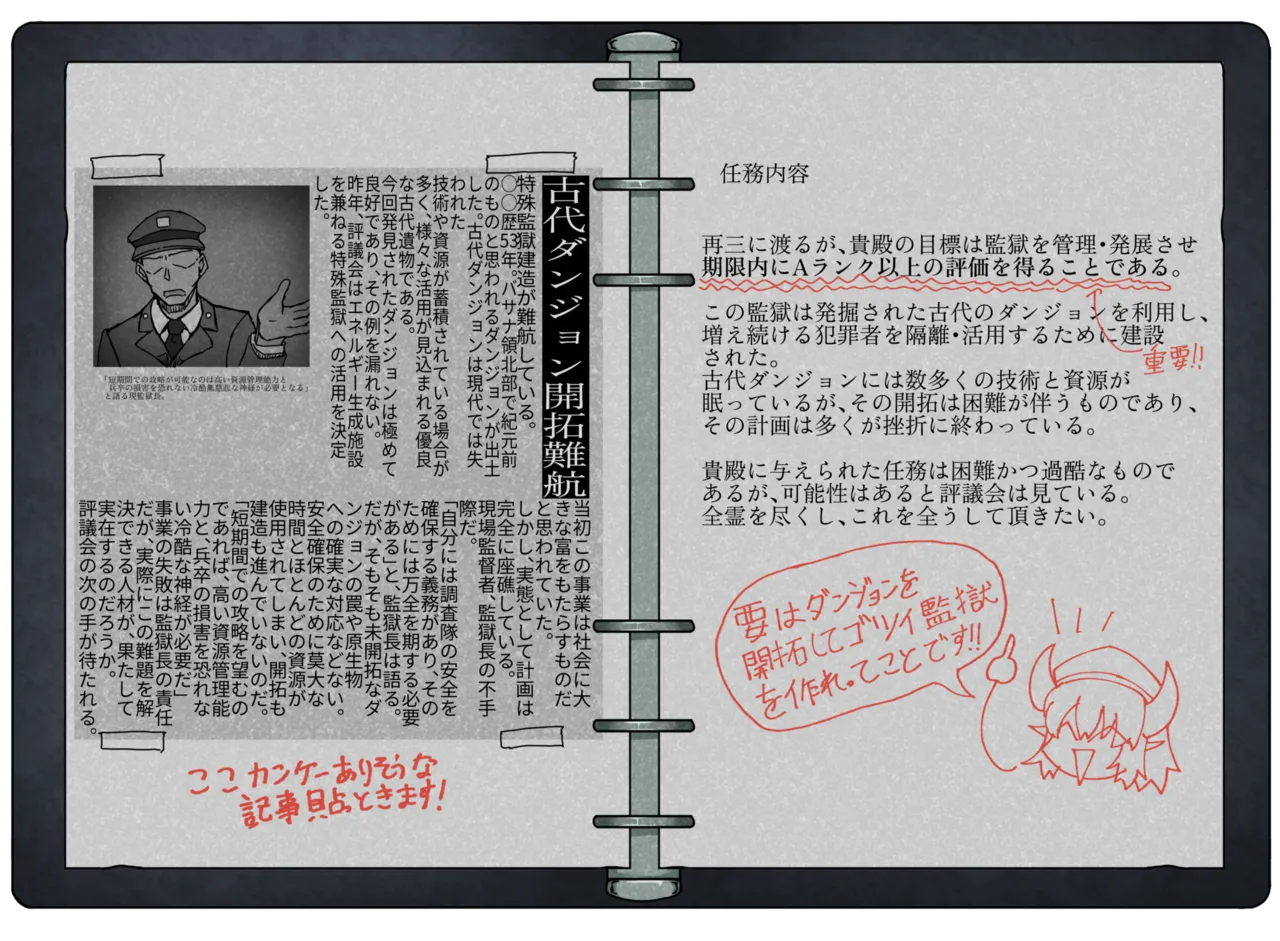 古代ダンジョン開拓難航
特殊監獄建造が難航している。
○○歴53年。バサナ領北部で紀元前
のものと思われるダンジョンが出土
した。古代ダンジョンは現代では失
われた
技術や資源が蓄積されている場合が
多く、様々な活用が見込まれる優良
な古代遺物である。
今回発見されたダンジョンは極めて
良好であり、その例を漏れない。
昨年、評議会はエネルギー生成施設
を兼ねる特殊監獄への活用を決定
した。
「短期間での攻略が可能なのは高い資源管理能力と
兵卒の損害を恐れない冷酷無慈悲な神経が必要となる」
と語る現監獄長。
当初この事業は社会に大
きな富をもたらすものだ
と思われていた。
しかし、実態として計画は
完全に座礁している。
現場監督者、監獄長の不手
際だ。
「自分には調査隊の安全を
確保する義務があり、その
ためには万全を期する必要
がある」と、監獄長は語る。
だが、そもそも未開拓なダ
ンジョンの罠や原生生物
への確実な対応などない。
安全確保のために莫大な
時間とほとんどの資源が
使用されてしまい、開拓も
建造も進んでいないのだ。
「短期間での攻略を望むの
であれば、高い資源管理能
力と、兵卒の損害を恐れな
い冷酷な神経が必要だ」
事業の失敗は監獄長の責任
だが、実際にこの難題を解
決できる人材が、果たして
実在するのだろうか。
評議会の次の手が待たれる。
ここカンケーありそうな
記事貼っときます!
任務内容
再三に渡るが、貴殿の目標は監獄を管理・発展させ
期限内にAランク以上の評価を得ることである。
この監獄は発掘された古代のダンジョンを利用し、
増え続ける犯罪者を隔離・活用するために建設
された。
重要!!
古代ダンジョンには数多くの技術と資源が
眠っているが、その開拓は困難が伴うものであり、
その計画は多くが挫折に終わっている。
貴殿に与えられた任務は困難かつ過酷なもので
あるが、可能性はあると評議会は見ている。
全霊を尽くし、これを全うして頂きたい。
要はダンジョンを
開拓してゴツイ監獄
を作れ。てことです!!